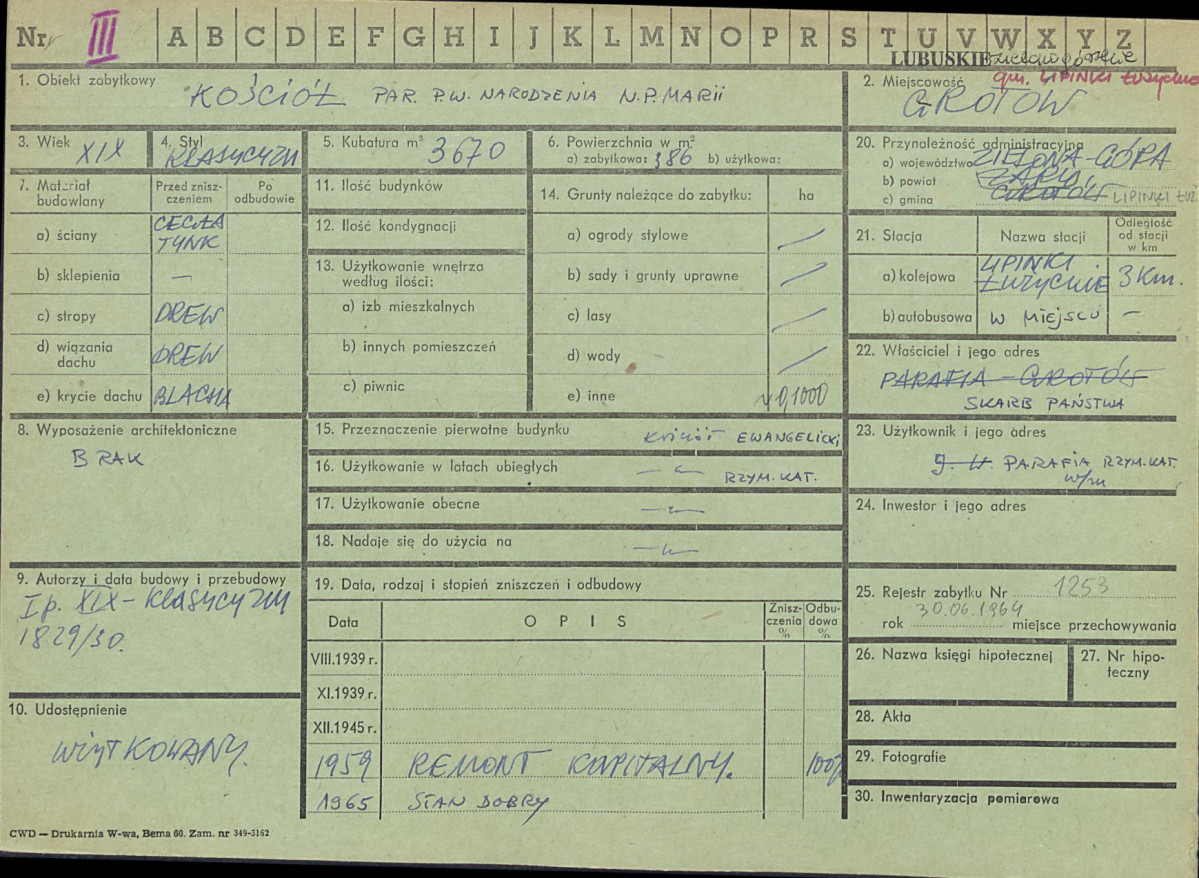 Nr III A B C D E F G H I J K L M N O P R S T U V W X Y Z
LUBUSKIE zielonogórskie
1. Obiekt zabytkowy KOŚCIÓŁ PAR. P.W. NARODZENIA N.P. MARII
2. Miejscowość gm. LIPINKI Łużyckie
GROTÓW
3. Wiek XIX
4. Styl KLASYCYZM
5. Kubatura m³ 3670
6. Powierzchnia w m²
a) zabytkowa: 386 b) użytkowa:
20. Przynależność administracyjna
a) województwo ZIELONA-GÓRA
b) powiat ŻARY
c) gmina GROTÓW LIPINKI ŁUŻ.
7. Materiał budowlany
Przed zniszczeniem
Po odbudowie
a) ściany CEGŁA TYNK
b) sklepienia —
c) stropy DREW
d) wiązania dachu DREW
e) krycie dachu BLACHA
11. Ilość budynków
12. Ilość kondygnacji
13. Użytkowanie wnętrza
według ilości:
a) izb mieszkalnych
b) innych pomieszczeń
c) piwnic
14. Grunty należące do zabytku: ha
a) ogrody stylowe /
b) sady i grunty uprawne /
c) lasy /
d) wody /
e) inne ~ 0,1000
21. Stacja Nazwa stacji Odległość od stacji w km
a) kolejowa LIPINKI ŁUŻYCKIE 3 Km.
b) autobusowa W MIEJSCU —
22. Właściciel i jego adres
PARAFIA - GROTÓW
SKARB PAŃSTWA
8. Wyposażenie architektoniczne
BRAK
15. Przeznaczenie pierwotne budynku Kościół EWANGELICKI
16. Użytkowanie w latach ubiegłych —"— RZYM. KAT.
17. Użytkowanie obecne —"—
18. Nadaje się do użycia na —"—
23. Użytkownik i jego adres
j. w. PARAFIA RZYM. KAT.
w/m
24. Inwestor i jego adres
9. Autorzy i data budowy i przebudowy
I p. XIX - KLASYCYZM
1829/30.
10. Udostępnienie
UŻYTKOWANY.
19. Data, rodzaj i stopień zniszczeń i odbudowy
Data OPIS Zniszczenia % Odbudowa %
VIII.1939 r.
XI.1939 r.
XII.1945 r.
1959 REMONT KAPITALNY. 100%
1965 STAN DOBRY
25. Rejestr zabytku Nr 1253
30.06.1964
rok miejsce przechowywania
26. Nazwa księgi hipotecznej
27. Nr hipoteczny
28. Akta
29. Fotografie
30. Inwentaryzacja pomiarowa
CWD — Drukarnia W-wa, Bema 60. Zam. nr 349-5162